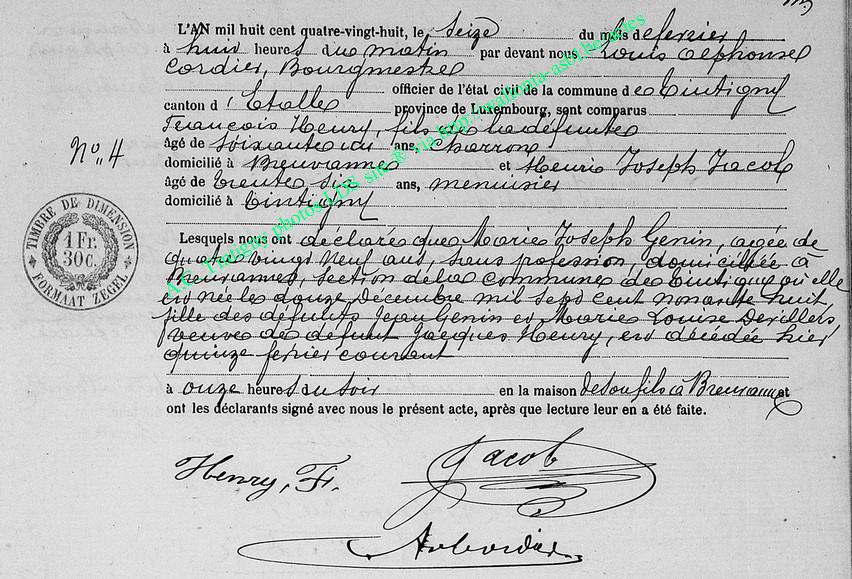 L'AN mil huit cent quatre-vingt-huit, le, seize du mois de fevrier
à huit heures du matin par devant nous Louis Alphonse
Cordier, Bourgmestre
officier de l'état civil de la commune de Tintigny
canton d'Etalle province de Luxembourg, sont comparus
François Henry, fils de la défunte
âgé de soixante un ans, charron
domicilié à Breuvanne et Henri Joseph Jacob
âgé de trente six ans, menuisier
domicilié à Tintigny
N° 4
TIMBRE DE DIMENSION
1 Fr.
30 c.
FORMAAT ZEGEL
Lesquels nous ont déclaré que Marie Joseph Genin, agée de
quatre vingt neuf ans, sans profession domiciliée à
Breuvannes, section de la commune de Tintigny où elle
est née le douze Decembre mil sept cent nonante huit,
fille des défunts Jean Genin et Marie Louise Devillers,
veuve de défunt Jacques Henry, est décédée hier
quinze fevrier courant
à onze heures du soir en la maison de son fils à Breuvanne et
ont les déclarants signé avec nous le présent acte, après que lecture leur en a été faite.
Henry, F. Jacob